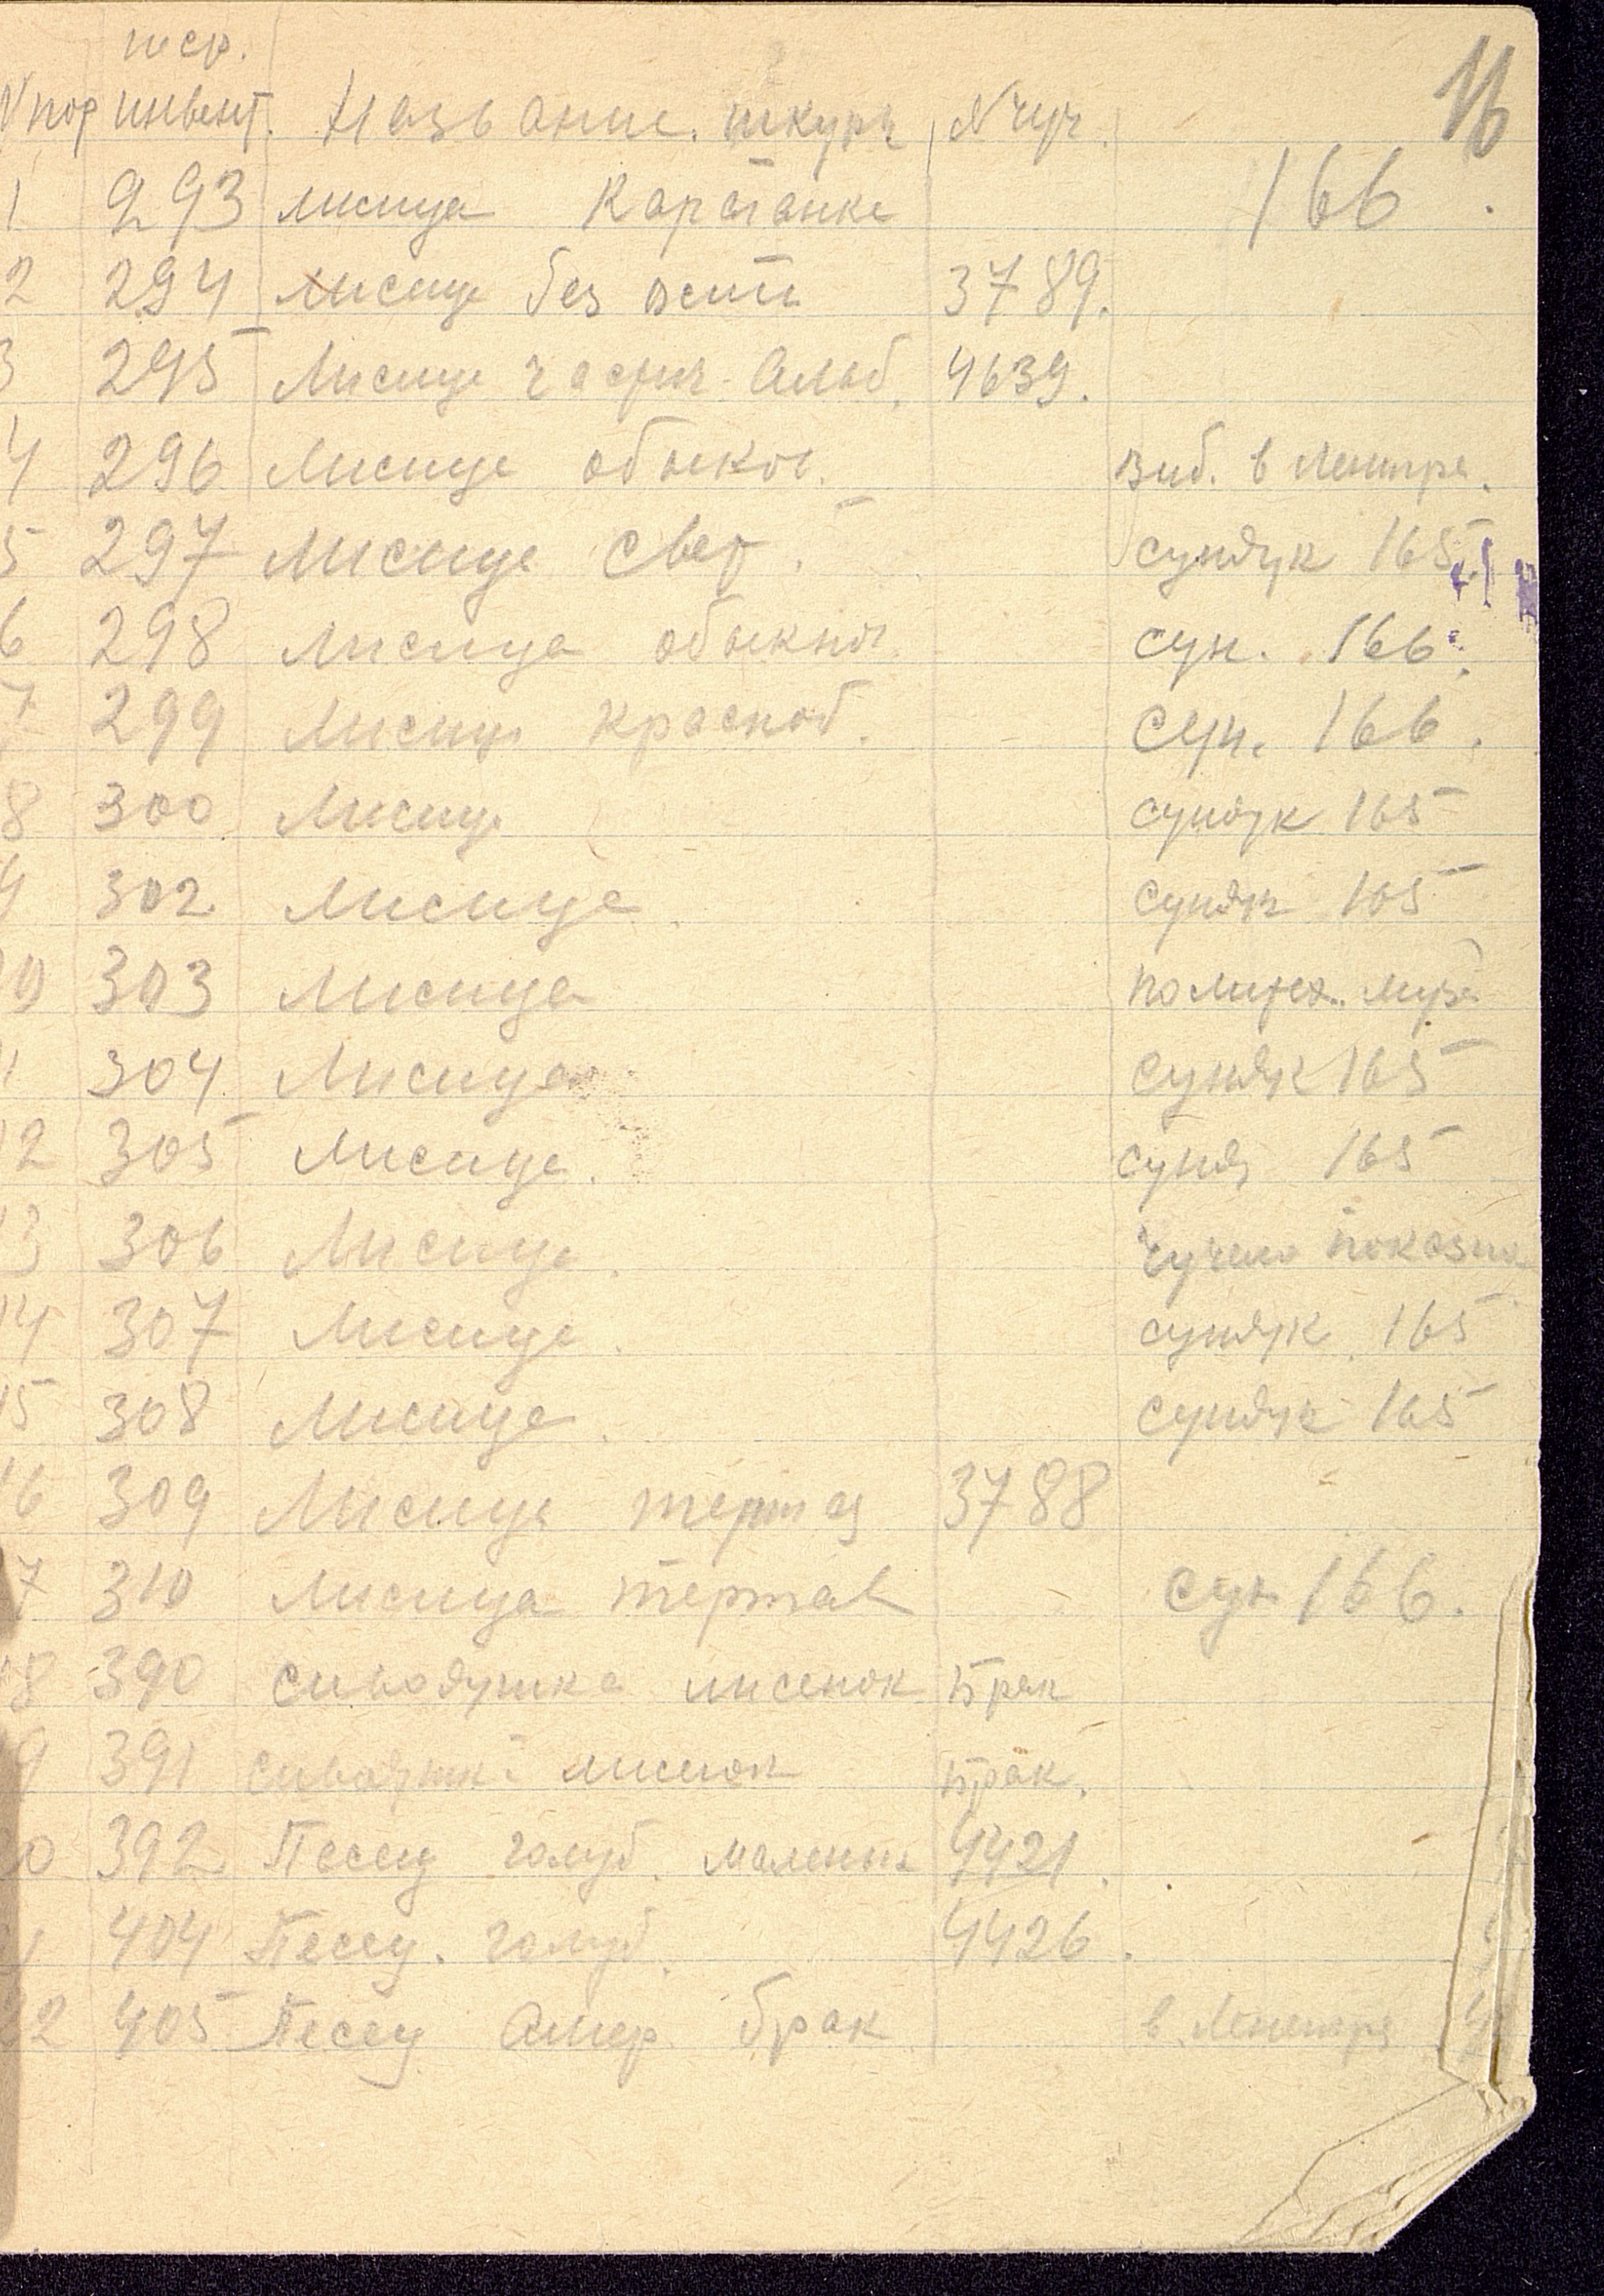 16
N пор инвент. Название шкуры N чуч.
1 293 лисица Караганка 166.
2 294 лисица без ости 3789.
3 295 Лисица част. Альб. 4639.
4 296 Лисица обыкн. в Ленингр.
5 297 Лисица свет. сундук 165
6 298 Лисица обыкнов. сун. 166.
7 299 Лисица красноб. Сун. 166.
8 300 Лисица сундук 165
9 302 Лисица. сундук 165
10 303 Лисица Политех. музе
11 304 Лисица сундук 165
12 305 Лисица. сунд 165
13 306 Лисица. чучело показна
14 307 Лисица. сундук 165
15 308 Лисица. сундук 165
16 309 Лисица тертая 3788
17 310 Лисица тертая сун 166.
18 390 сиводушка лисенок Брак
19 391 сиводушк. лисенок Брак.
20 392 Песец голуб. маленьк 4421.
21 404 Песец. голуб. 4426.
22 405 Песец Амер. брак в Ленингра